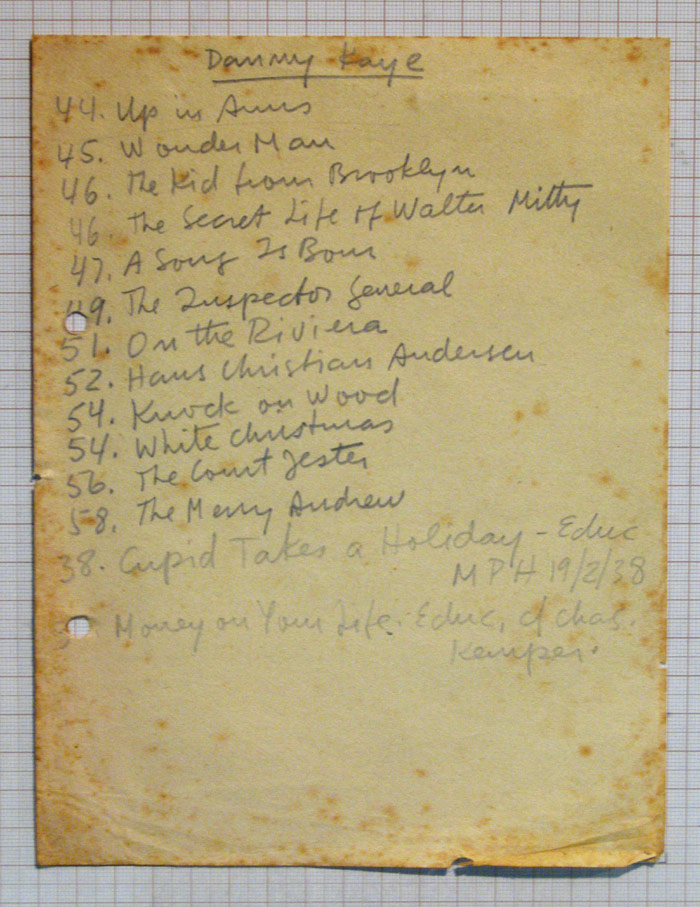 Danny Kaye
44. Up in Arms
45. Wonder Man
46. The Kid from Brooklyn
46 The Secret Life of Walter Mitty
47. A Song Is Born
49. The Inspector General
51. On the Riviera
52. Hans Christian Andersen
54. Knock on Wood
54. White Christmas
56. The Court Jester
58. The Merry Andrew
38. Cupid Takes a Holiday - Educ
MPH 19/2/38
Money on Your Life. Educ, c/ Chas.
Kemper.